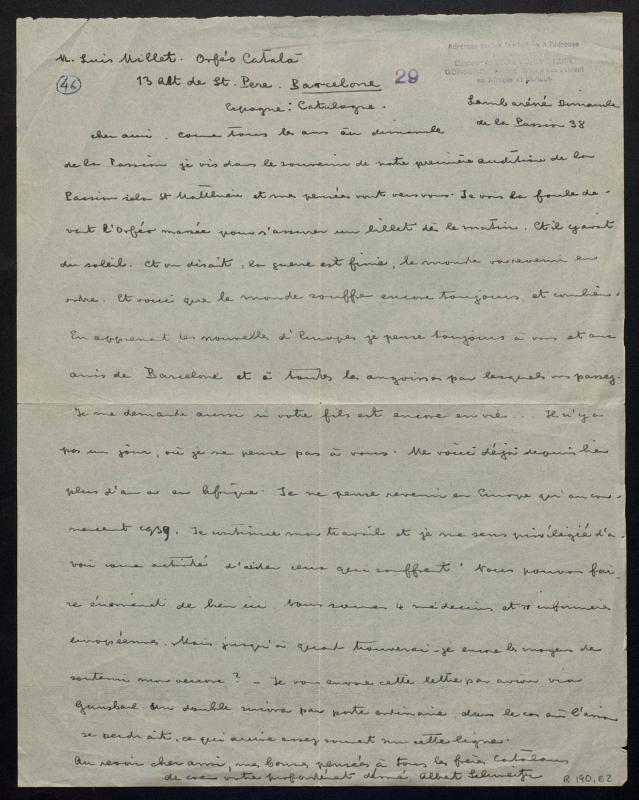 M. Luis Millet. Orféo Català
46
13 Alt de St. Pere. Barcelone
29
Espagne: Catalogne.
Lambaréné Dimanche
de la Passion 38
cher ami. Come tous les ans au dimanche
de la Passion je vis dans le souvenir de votre première audition de la
Passion selon St Matthieu et mes pensées vont vers vous. Je vois la foule de-
vant l'Orféo massée pour s'assurer un billet dès le matin. Et il y avait
du soleil. Et on disait: la guerre est finie, le monde va revenir en
ordre. Et voici que le monde souffre encore toujours, et combien.
En apprenant les nouvelles d'Europe je pense toujours à vous et aux
amis de Barcelone et à toutes les angoisses par lesquels vous passez.
Je me demande aussi si votre fils est encore en vie... Il n'y a
pas un jour, où je ne pense pas à vous. Me voici déjà depuis bien
plus d'un an en Afrique. Je ne pense revenir en Europe qu'au com-
mencement 1939. Je continue mon travail et je me sens privilégié d'a-
voir come activité d'aider ceux qui souffrent. Nous pouvons fai-
re énormément de bien ici. Nous somes 4 médecins et infirmières
européennes. Mais jusqu'à quand trouverai-je encore les moyens de
soutenir mon oeuvre? – Je vous envoie cette lettre par avion via
Gunsbach. Un double suivra par poste ordinaire, dans le cas où l'avion
se perdrait, ce qui arrive assez souvent sur cette ligne.
Au revoir cher ami, mes bonnes pensées à tous les frères Catalans
de coeur votre profondément dévoué Albert Schweitzer
R 190, 62